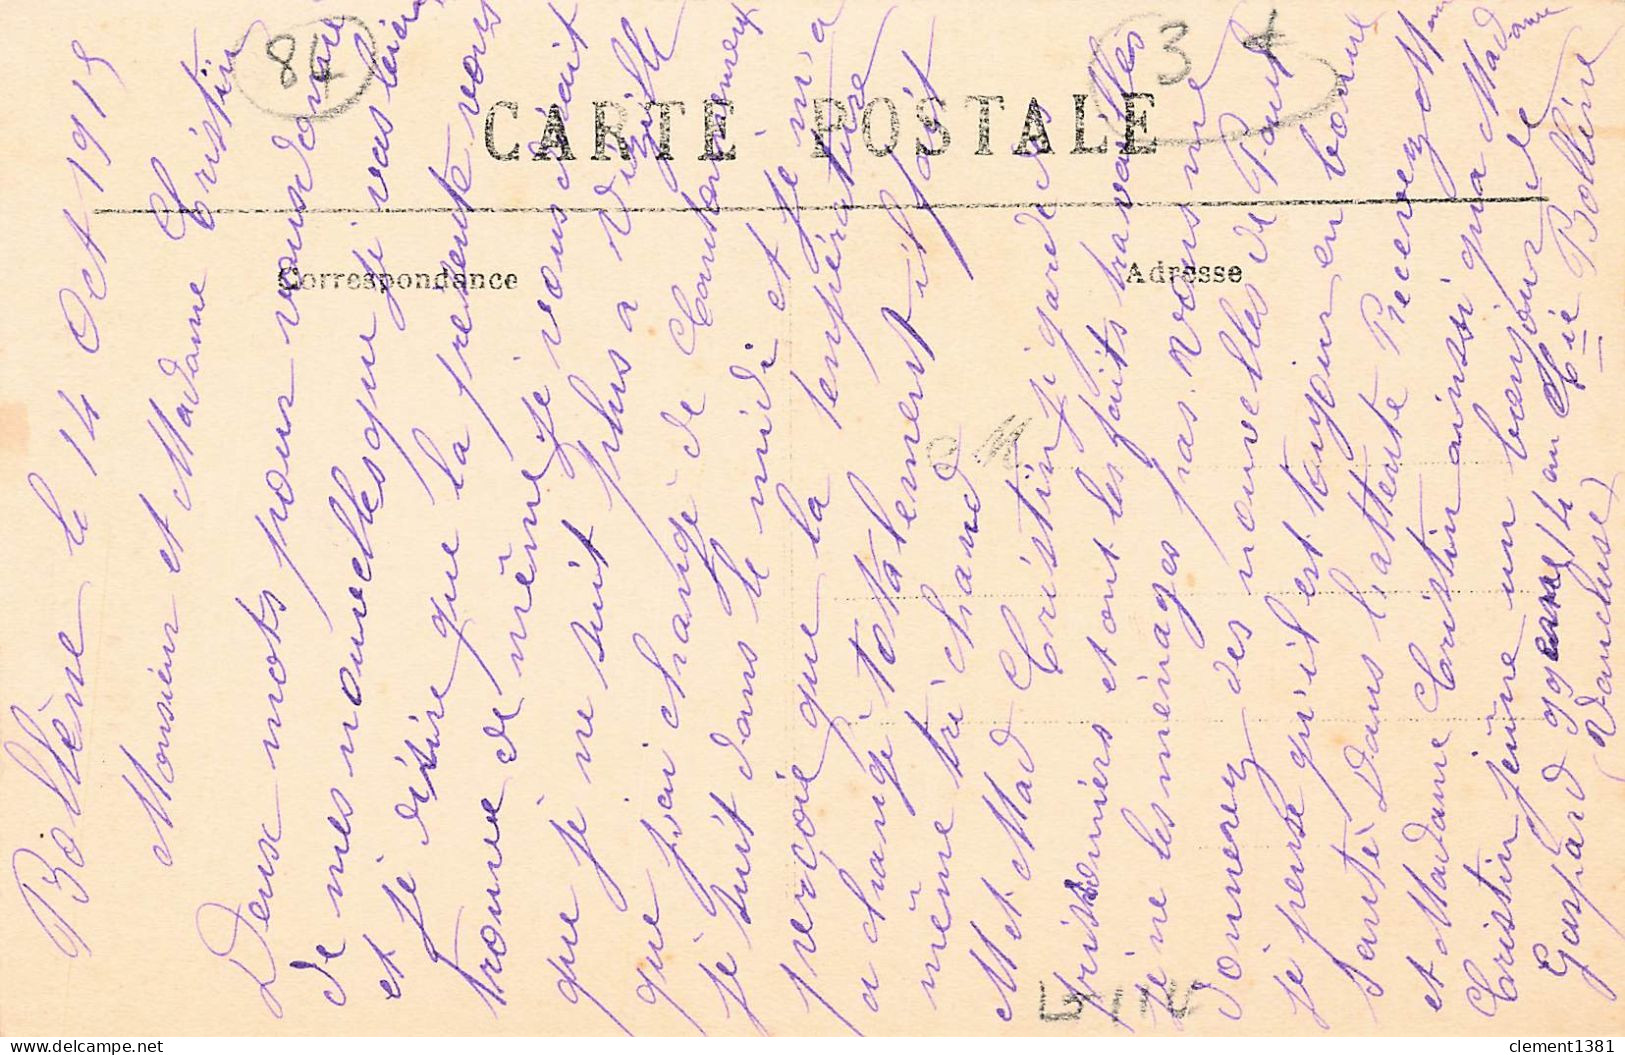 CARTE POSTALE
Correspondance
Adresse
84
3 4
Bollène le 14 Oct 1915
Monsieur et Madame Cristin
Deux mots pour vous donnaie
de mes nouvelles que je vas bien
et je désire que la presente vous
trouve de même je vous dirait
que je ne suit plus a Vizille
que j'ai changé de Cantonnement
je suit dans le midi et je m'a
perçoie que la température
a changé totalement il fait
même tré chaud
M et Mad Cristin j garde des
prisonniers et tont les faits travaillés
je ne les ménages pas. Vous me
donnerez des nouvelles de Paul
je pense qu'il est toujour en bonne
santé Dans l'attente Recevez M
et Madame Cristin ainssi qua Madame
Cristin jeûne un bonjour de
Gaspard 14 au Cie Bollène
(Vaucluse)
clement1381